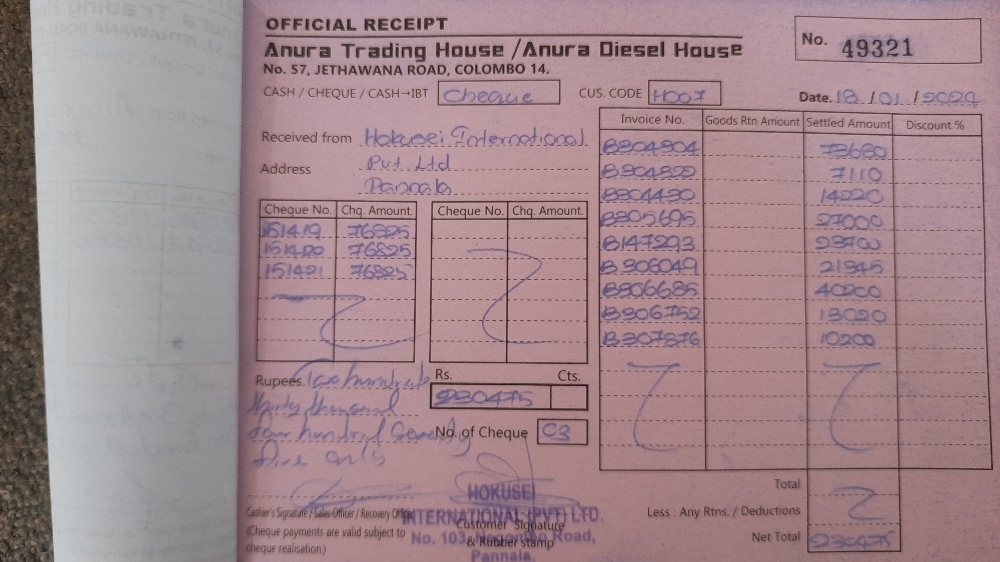 OFFICIAL RECEIPT
Anura Trading House / Anura Diesel House
No. 57, JETHAWANA ROAD, COLOMBO 14.
No. 49321
CASH / CHEQUE / CASH→IBT Cheque CUS. CODE H007 Date. 18 / 01 / 2024
Received from Hokusei International
Address Pvt Ltd
Pannala
Cheque No. Chq. Amount.
151419 76825
151420 76825
151421 76825
Cheque No. Chq. Amount.
Invoice No. Goods Rtn Amount Settled Amount Discount %
73680
7110
14220
B305695 27000
B147293 23700
B306049 21345
B306685 40200
B306752 13020
B307876 10200
Rupees. Two hundred
thirty thousand
four hundred seventy
five only
Rs. Cts.
230475
No. of Cheque 03
Total
Less : Any Rtns. / Deductions
Net Total 230475
Cashier's Signature / Sales Officer / Recovery Officer
(Cheque payments are valid subject to
cheque realisation.)
Customer Signature
& Rubber stamp
HOKUSEI
INTERNATIONAL (PVT) LTD.
No. 103, Negombo Road,
Pannala.